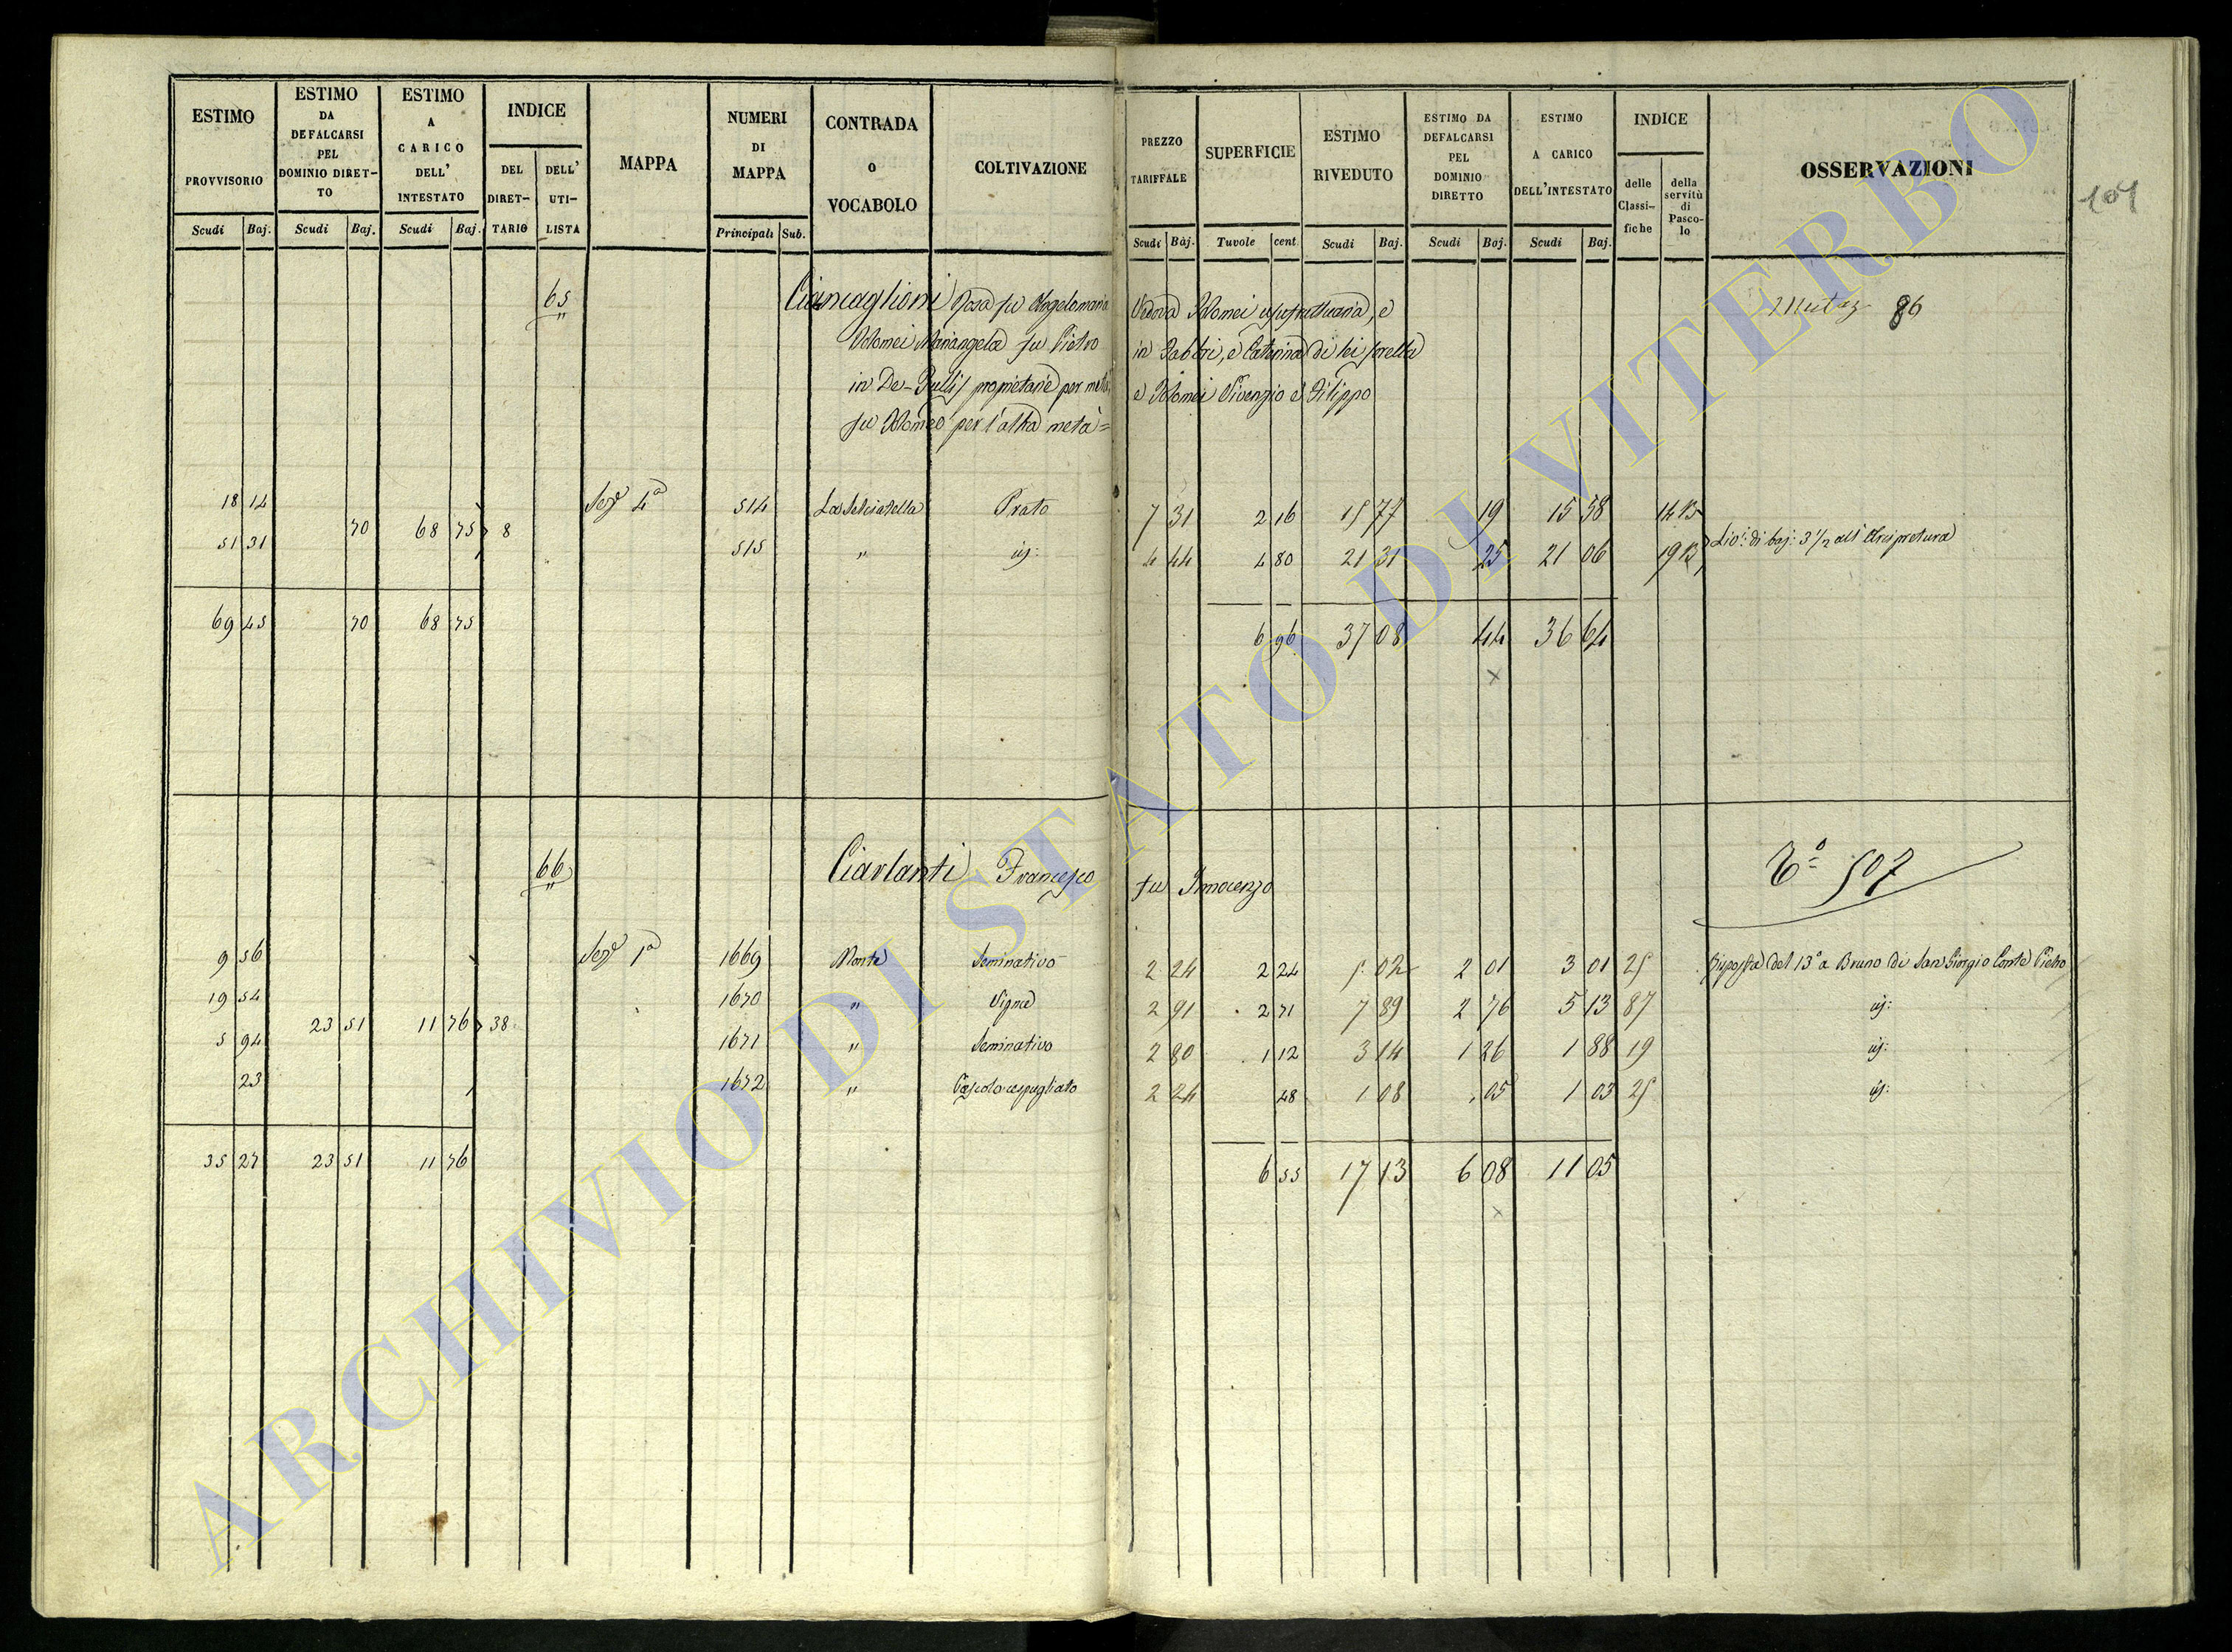 ESTIMO PROVVISORIO
ESTIMO DA DEFALCARSI PEL DOMINIO DIRET-TO
ESTIMO A CARICO DELL' INTESTATO
INDICE
DEL DIRET-TARIO
DELL' UTI-LISTA
MAPPA
NUMERI DI MAPPA
CONTRADA O VOCABOLO
COLTIVAZIONE
PREZZO TARIFFALE
SUPERFICIE
ESTIMO RIVEDUTO
ESTIMO DA DEFALCARSI PEL DOMINIO DIRETTO
ESTIMO A CARICO DELL'INTESTATO
INDICE
delle Classi-fiche
della servitù di Pasco-lo
OSSERVAZIONI
104
Scudi Baj. Scudi Baj. Scudi Baj. Principali Sub. Scudi Baj. Tavole cent. Scudi Baj. Scudi Baj. Scudi Baj.
65 Ciancaglioni Rosa fu Angelomaria Vedova Tolomei usufruttuaria, e
Tolomei Mariangela fu Pietro in Fabbri, e Caterina di lei sorella
in De-Jullis proprietarie per metà, e Tolomei Vivenzio e Filippo
fu Tolomeo per l'altra metà =
Mutaz 86
18 14 Sez 4a 514 La Selciatella Prato 7 31 2 16 15 77 19 15 58 14 13
70 68 75 8 Liv: di baj: 3 1/2 all'Arcipretura
51 31 515 " id: 4 44 4 80 21 31 25 21 06 19 13
69 45 70 68 75 6 96 37 08 44 36 64
66 Ciarlanti Francesco fu Innocenzo
To 507
9 56 Sez 1a 1669 Monte Seminativo 2 24 2 24 5 02 2 01 3 01 25 Risposta del 13o a Bruno di San Giorgio Conte Pietro
19 54 1670 " Vigna 2 91 2 71 7 89 2 76 5 13 87 id:
23 51 11 76 38
5 94 1671 " Seminativo 2 80 1 12 3 14 1 26 1 88 19 id:
23 1672 " Pascolo cespugliato 2 24 48 1 08 05 1 03 25 id:
35 27 23 51 11 76 6 55 17 13 6 08 11 05
ARCHIVIO DI STATO DI VITERBO